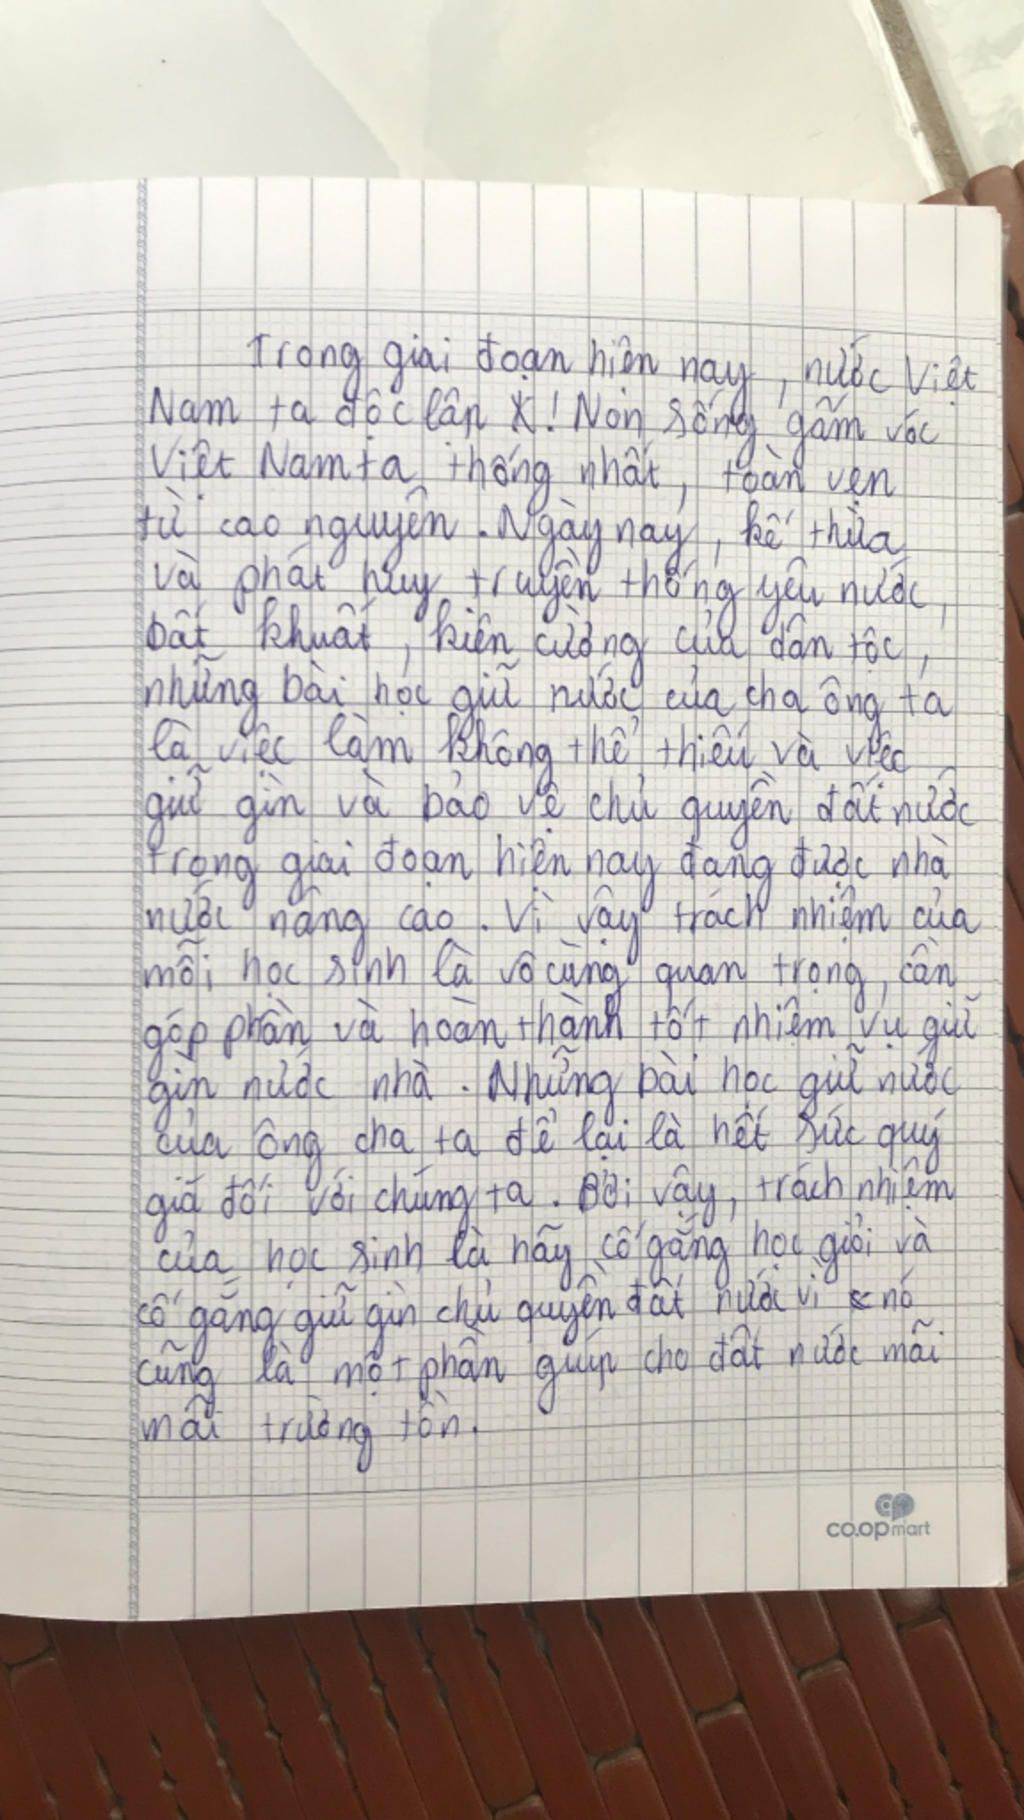 Trong giai đoạn hiện nay, nước Việt
Nam ta độc lân! Non sống gấm vóc
Việt Nam ta thống nhất, toàn vẹn
từ cao nguyên. Ngày nay, kế thừa
và phát huy truyền thống yêu nước,
bất khuất, kiên cường của dân tộc,
những bài học giữ nước của cha ông ta
là việc làm không thể thiếu và việc
giữ gìn và bảo vệ chủ quyền đất nước
trong giai đoạn hiện nay đang được nhà
nước nâng cao. Vì vậy trách nhiệm của
mỗi học sinh là vô cùng quan trọng, cần
góp phần và hoàn thành tốt nhiệm vụ giữ
gìn nước nhà. Những bài học giữ nước
của ông cha ta để lại là hết sức quý
giá đối với chúng ta. Bởi vậy, trách nhiệm
của học sinh là hãy cố gắng học giỏi và
cố gắng giữ gìn chủ quyền đất nước vì nó
cũng là một phần giúp cho đất nước mãi
mãi trường tồn.
co.opmart